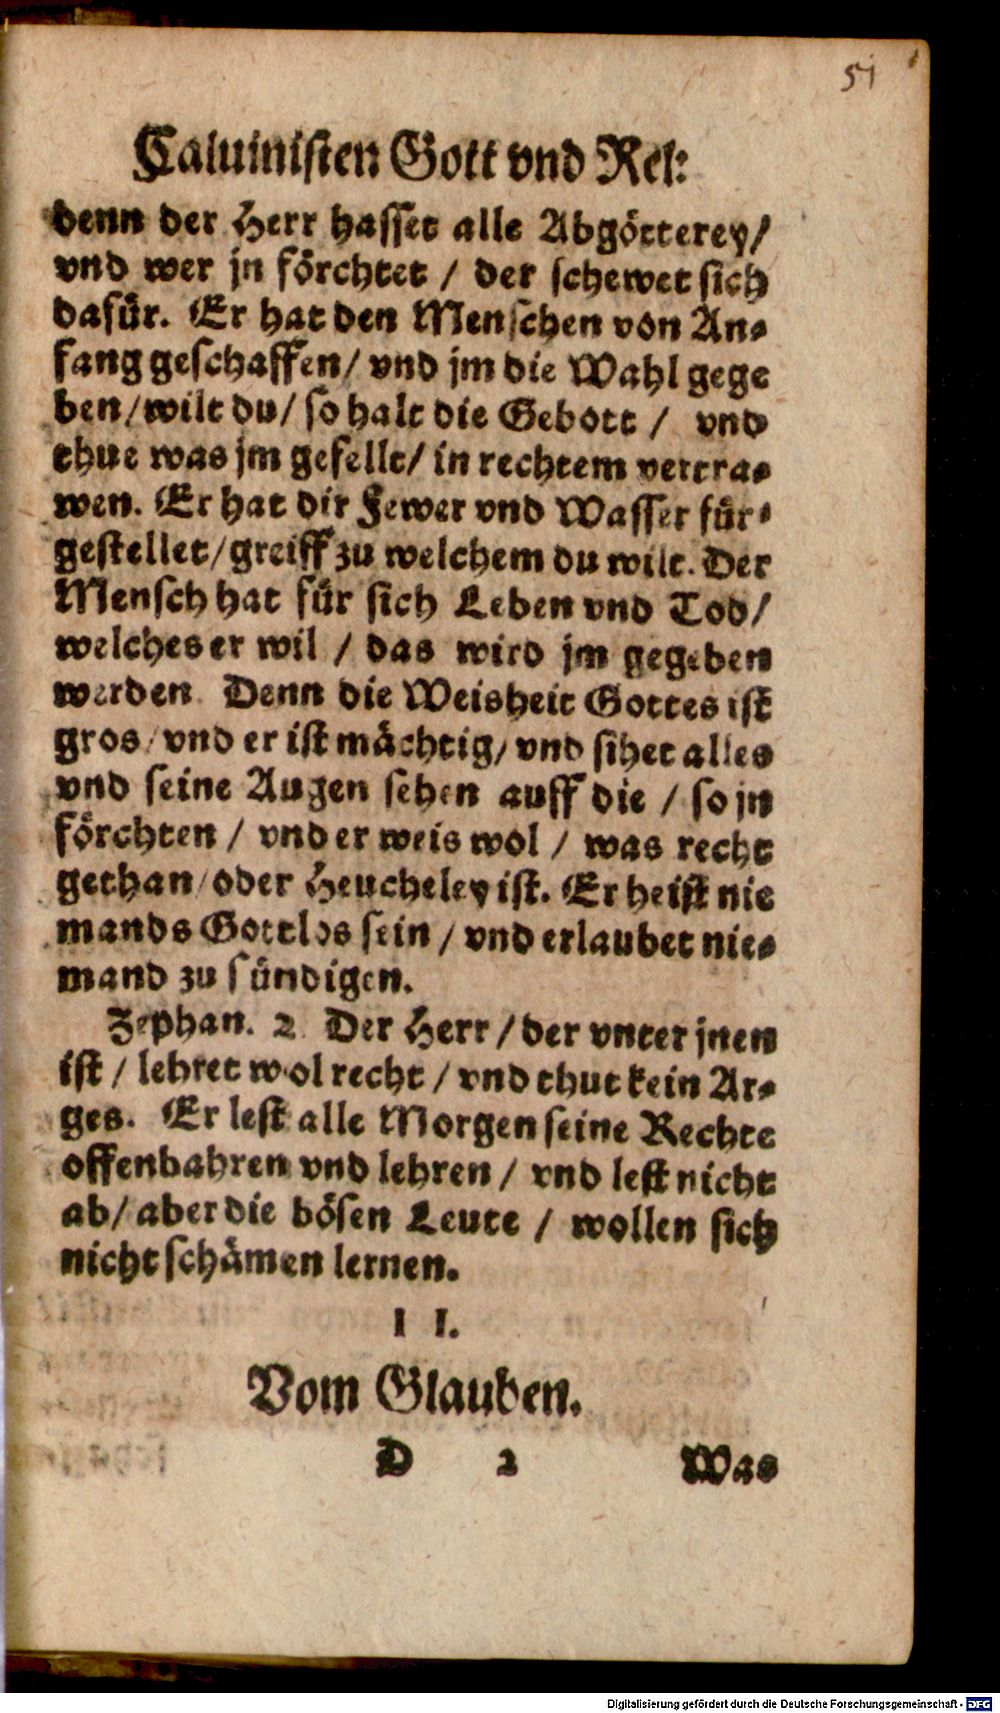 51
Caluinisten Gott vnd Rel:
denn der Herr hasset alle Abgötterey/
vnd wer jn förchtet / der schewet sich
dafür. Er hat den Menschen von An-
fang geschaffen/ vnd jm die Wahl gege
ben/ wilt du/ so halt die Gebott / vnd
thue was jm gefellt/ in rechtem vertra-
wen. Er hat dir Fewer vnd Wasser für-
gestellet/ greiff zu welchem du wilt. Der
Mensch hat für sich Leben vnd Tod/
welches er wil / das wird jm gegeben
werden Denn die Weisheit Gottes ist
gros/ vnd er ist mächtig/ vnd sihet alles
vnd seine Augen sehen auff die / so jn
förchten / vnd er weis wol / was recht
gethan/ oder Heucheley ist. Er heist nie
mands Gottlos sein / vnd erlaubet nie-
mand zu sündigen.
Zephan. 2 Der Herr / der vnter jnen
ist / lehret wol recht / vnd thut kein Ar-
ges. Er lest alle Morgen seine Rechte
offenbahren vnd lehren / vnd lest nicht
ab/ aber die bösen Leute / wollen sich
nicht schämen lernen.
II.
Vom Glauben.
D 2 Was
Digitalisierung gefördert durch die Deutsche Forschungsgemeinschaft - DFG